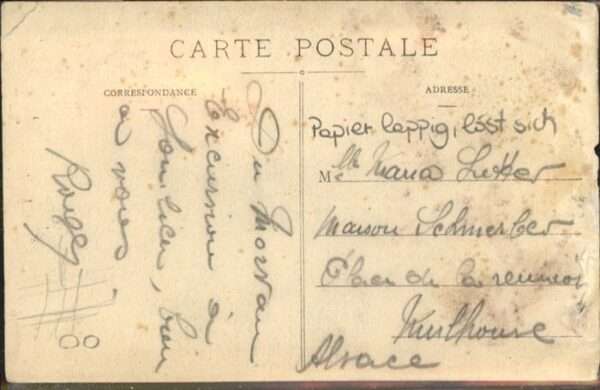 CARTE POSTALE
CORRESPONDANCE
ADRESSE
Du Morvan
Excursion à
bien
à vous
Roger
00
Papier lappig, löst sich
Mlle Maria
Maison Schmerber
Place de la reunion
Mulhouse
Alsace